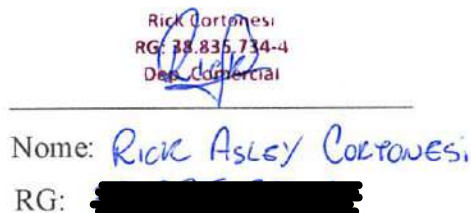 Rick Cortonesi
RG: 38.835.734-4
Dep. Comercial
Nome: RICK ASLEY CORTONESi
RG: